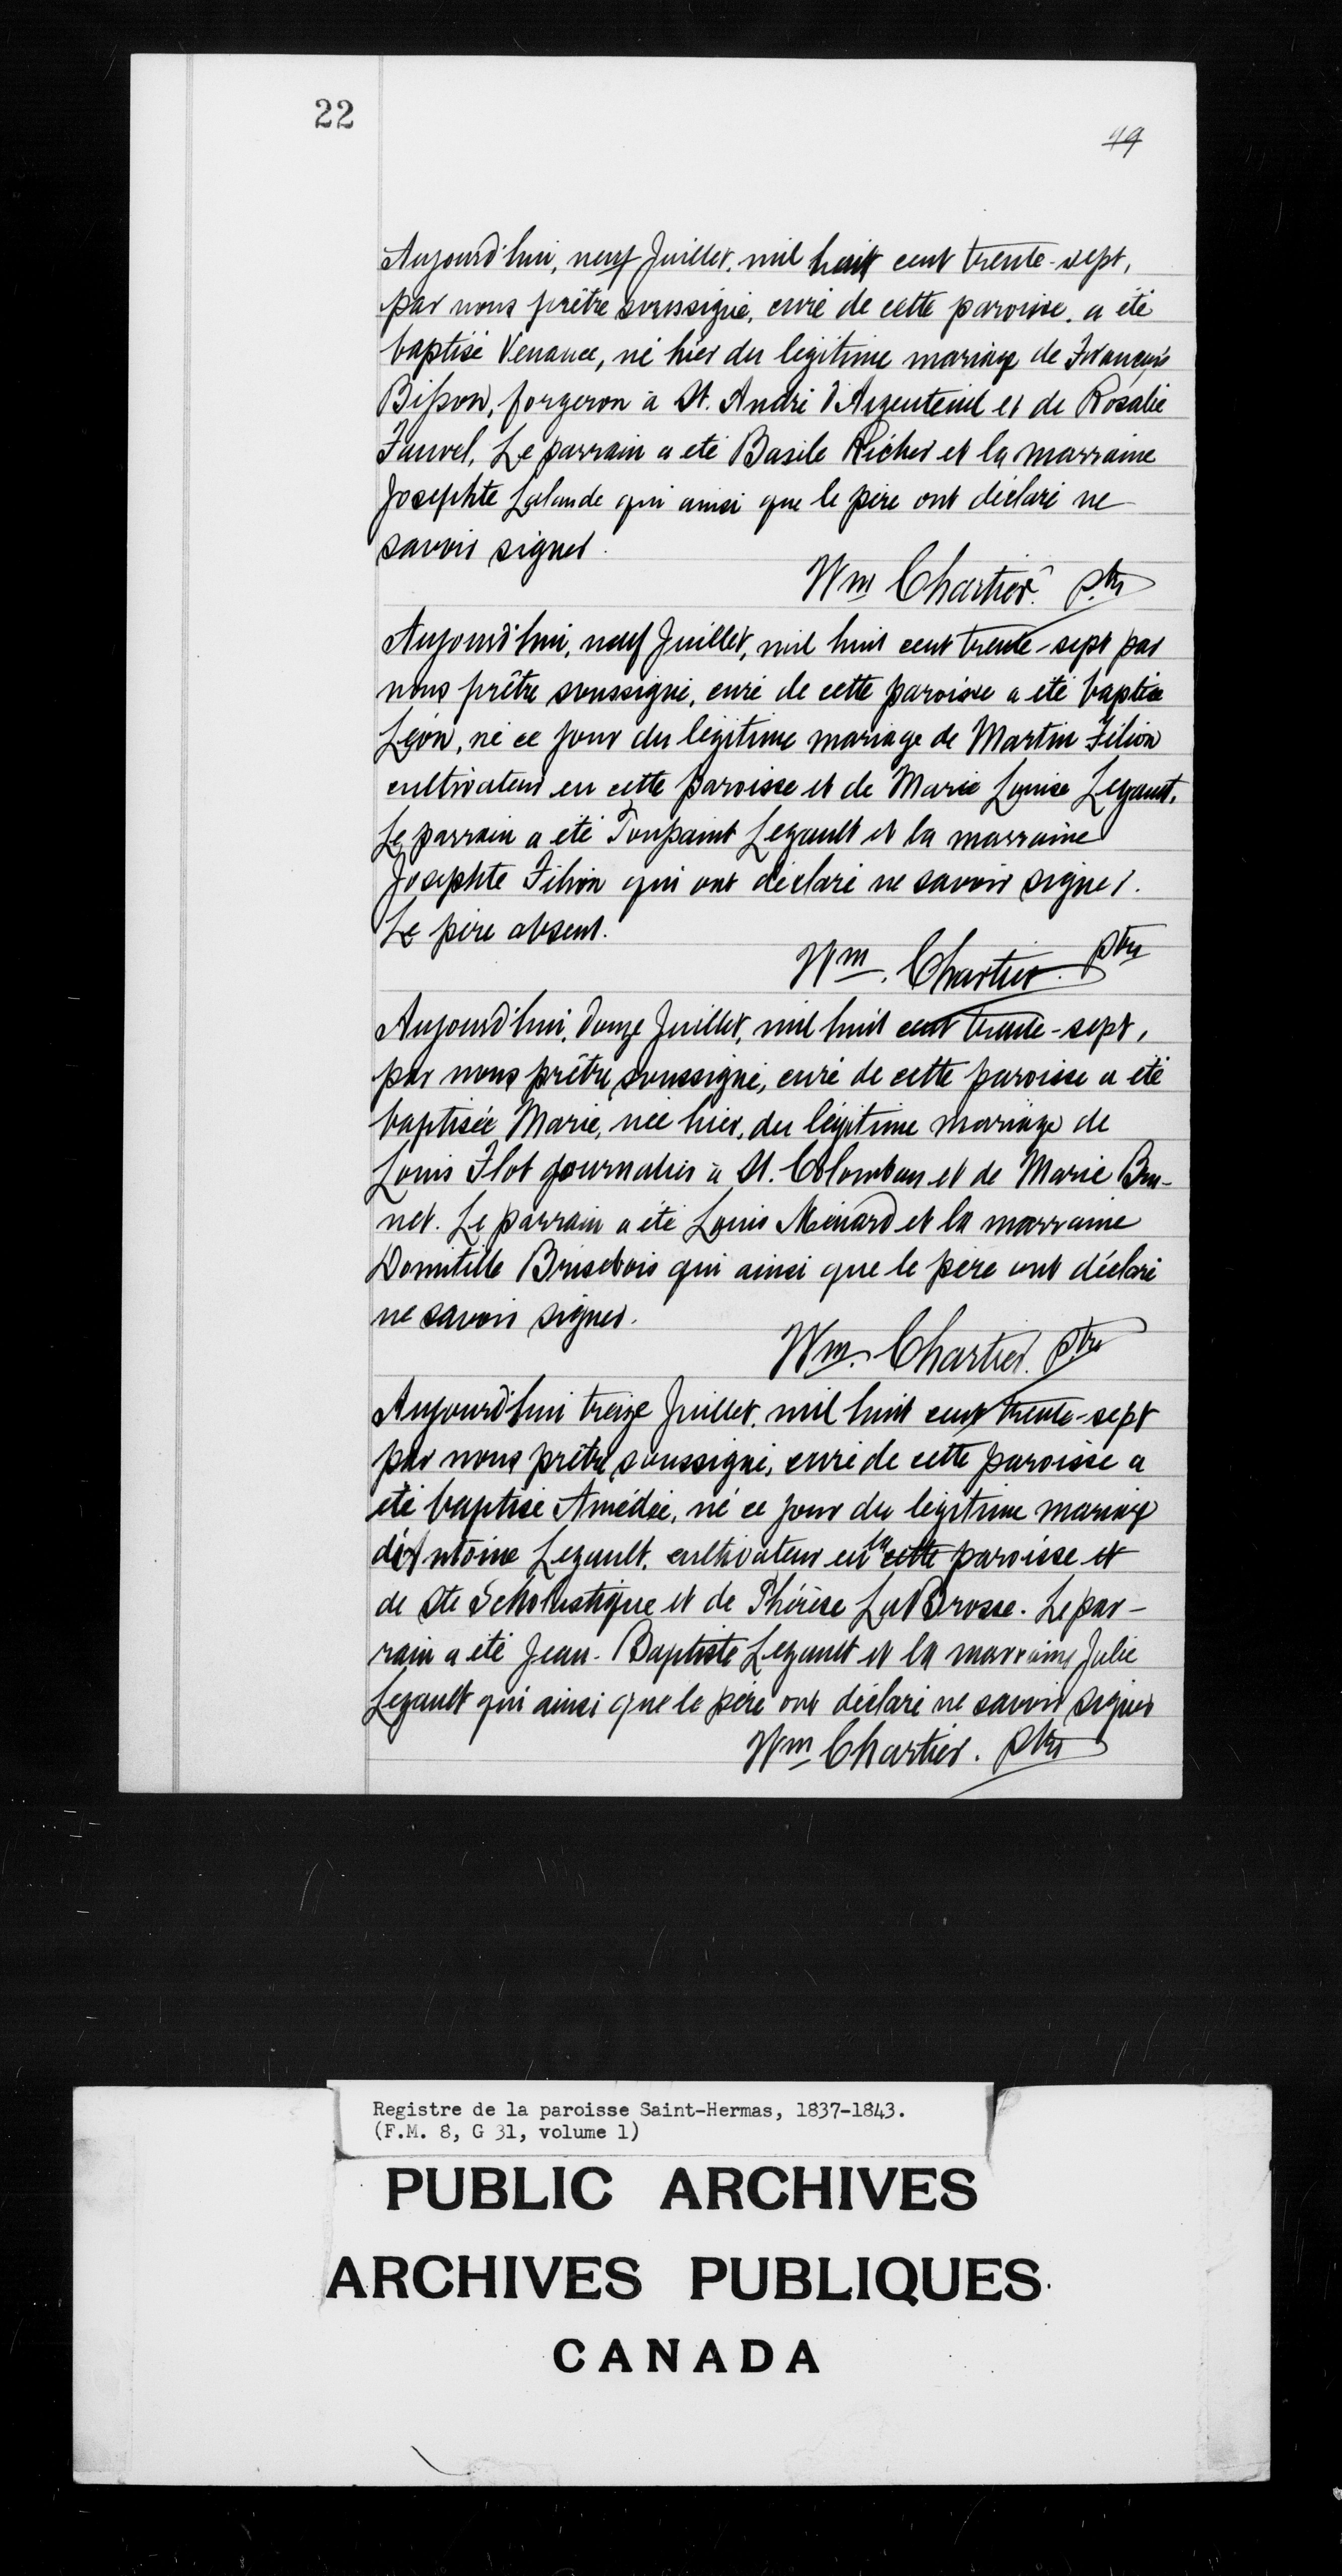 22
19
Aujourd'hui, neuf Juillet, mil huit cent trente-sept,
par nous prêtre soussigné, curé de cette paroisse, a été
baptisé Venance, né hier du légitime mariage de François
Bisson, forgeron à St. André d'Argenteuil et de Rosalie
Fauvel, Le parrain a été Basile Richer et la marraine
Josephte Lalande qui ainsi que le père ont déclaré ne
savoir signer.
Wm Chartier. ptre
Aujourd'hui, neuf Juillet, mil huit cent trente-sept par
nous prêtre soussigné, curé de cette paroisse a été baptisé
Léon, né ce jour du légitime mariage de Martin Filion
cultivateur en cette paroisse et de Marie Louise Legault.
Le parrain a été Toussaint Legault et la marraine
Josephte Filion qui ont déclaré ne savoir signer.
Le père absent.
Wm. Chartier. ptre
Aujourd'hui, douze Juillet, mil huit cent trente-sept,
par nous prêtre soussigné, curé de cette paroisse a été
baptisée Marie, née hier, du légitime mariage de
Louis Flot journalier à St. Colomban et de Marie Bru-
net. Le parrain a été Louis Ménard et la marraine
Domitille Brisebois qui ainsi que le père ont déclaré
ne savoir signer.
Wm. Chartier. ptre
Aujourd'hui treize Juillet, mil huit cent trente-sept
par nous prêtre soussigné, curé de cette paroisse a
été baptisé Amédée, né ce jour du légitime mariage
d'Antoine Legault, cultivateur en la cette paroisse et
de Ste Scholastique et de Thérèse LaBrosse. Le par-
rain a été Jean-Baptiste Legault et la marraine Julie
Legault qui ainsi que le père ont déclaré ne savoir signer
Wm Chartier. ptre
Registre de la paroisse Saint-Hermas, 1837-1843.
(F.M. 8, G 31, volume 1)
PUBLIC ARCHIVES
ARCHIVES PUBLIQUES
CANADA